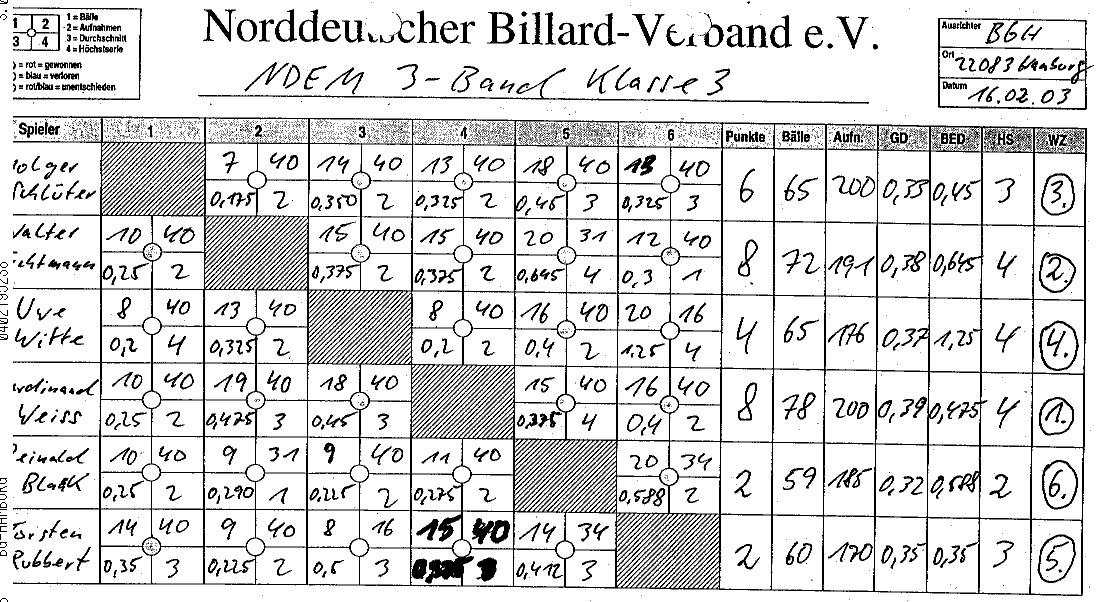 1 2
3 4
1 = Bälle
2 = Aufnahmen
3 = Durchschnitt
4 = Höchstserie
) = rot = gewonnen
) = blau = verloren
) = rot/blau = unentschieden
Norddeutscher Billard-Verband e.V.
NDEM 3-Band Klasse 3
Ausrichter BGH
Ort 22083 Hamburg
Datum 16.02.03
Spieler 1 2 3 4 5 6 Punkte Bälle Aufn. GD BED HS WZ
olger 7 40 14 40 13 40 18 40 13 40
Schlüter 0,175 2 0,350 2 0,325 2 0,45 3 0,325 3 6 65 200 0,33 0,45 3 3.
alter 10 40 15 40 15 40 20 31 12 40
chtmann 0,25 2 0,375 2 0,375 2 0,645 4 0,3 1 8 72 191 0,38 0,645 4 2.
Uwe 8 40 13 40 8 40 16 40 20 16
Witte 0,2 4 0,325 2 0,2 2 0,4 2 1,25 4 4 65 176 0,37 1,25 4 4.
erdinand 10 40 19 40 18 40 15 40 16 40
Weiss 0,25 2 0,475 3 0,45 3 0,375 4 0,4 2 8 78 200 0,39 0,475 4 1.
einald 10 40 9 31 9 40 11 40 20 34
Black 0,25 2 0,290 1 0,225 2 0,275 2 0,588 2 2 59 185 0,32 0,588 2 6.
orsten 14 40 9 40 8 16 15 40 14 34
Rubbert 0,35 3 0,225 2 0,5 3 0,375 3 0,412 3 2 60 170 0,35 0,35 3 5.